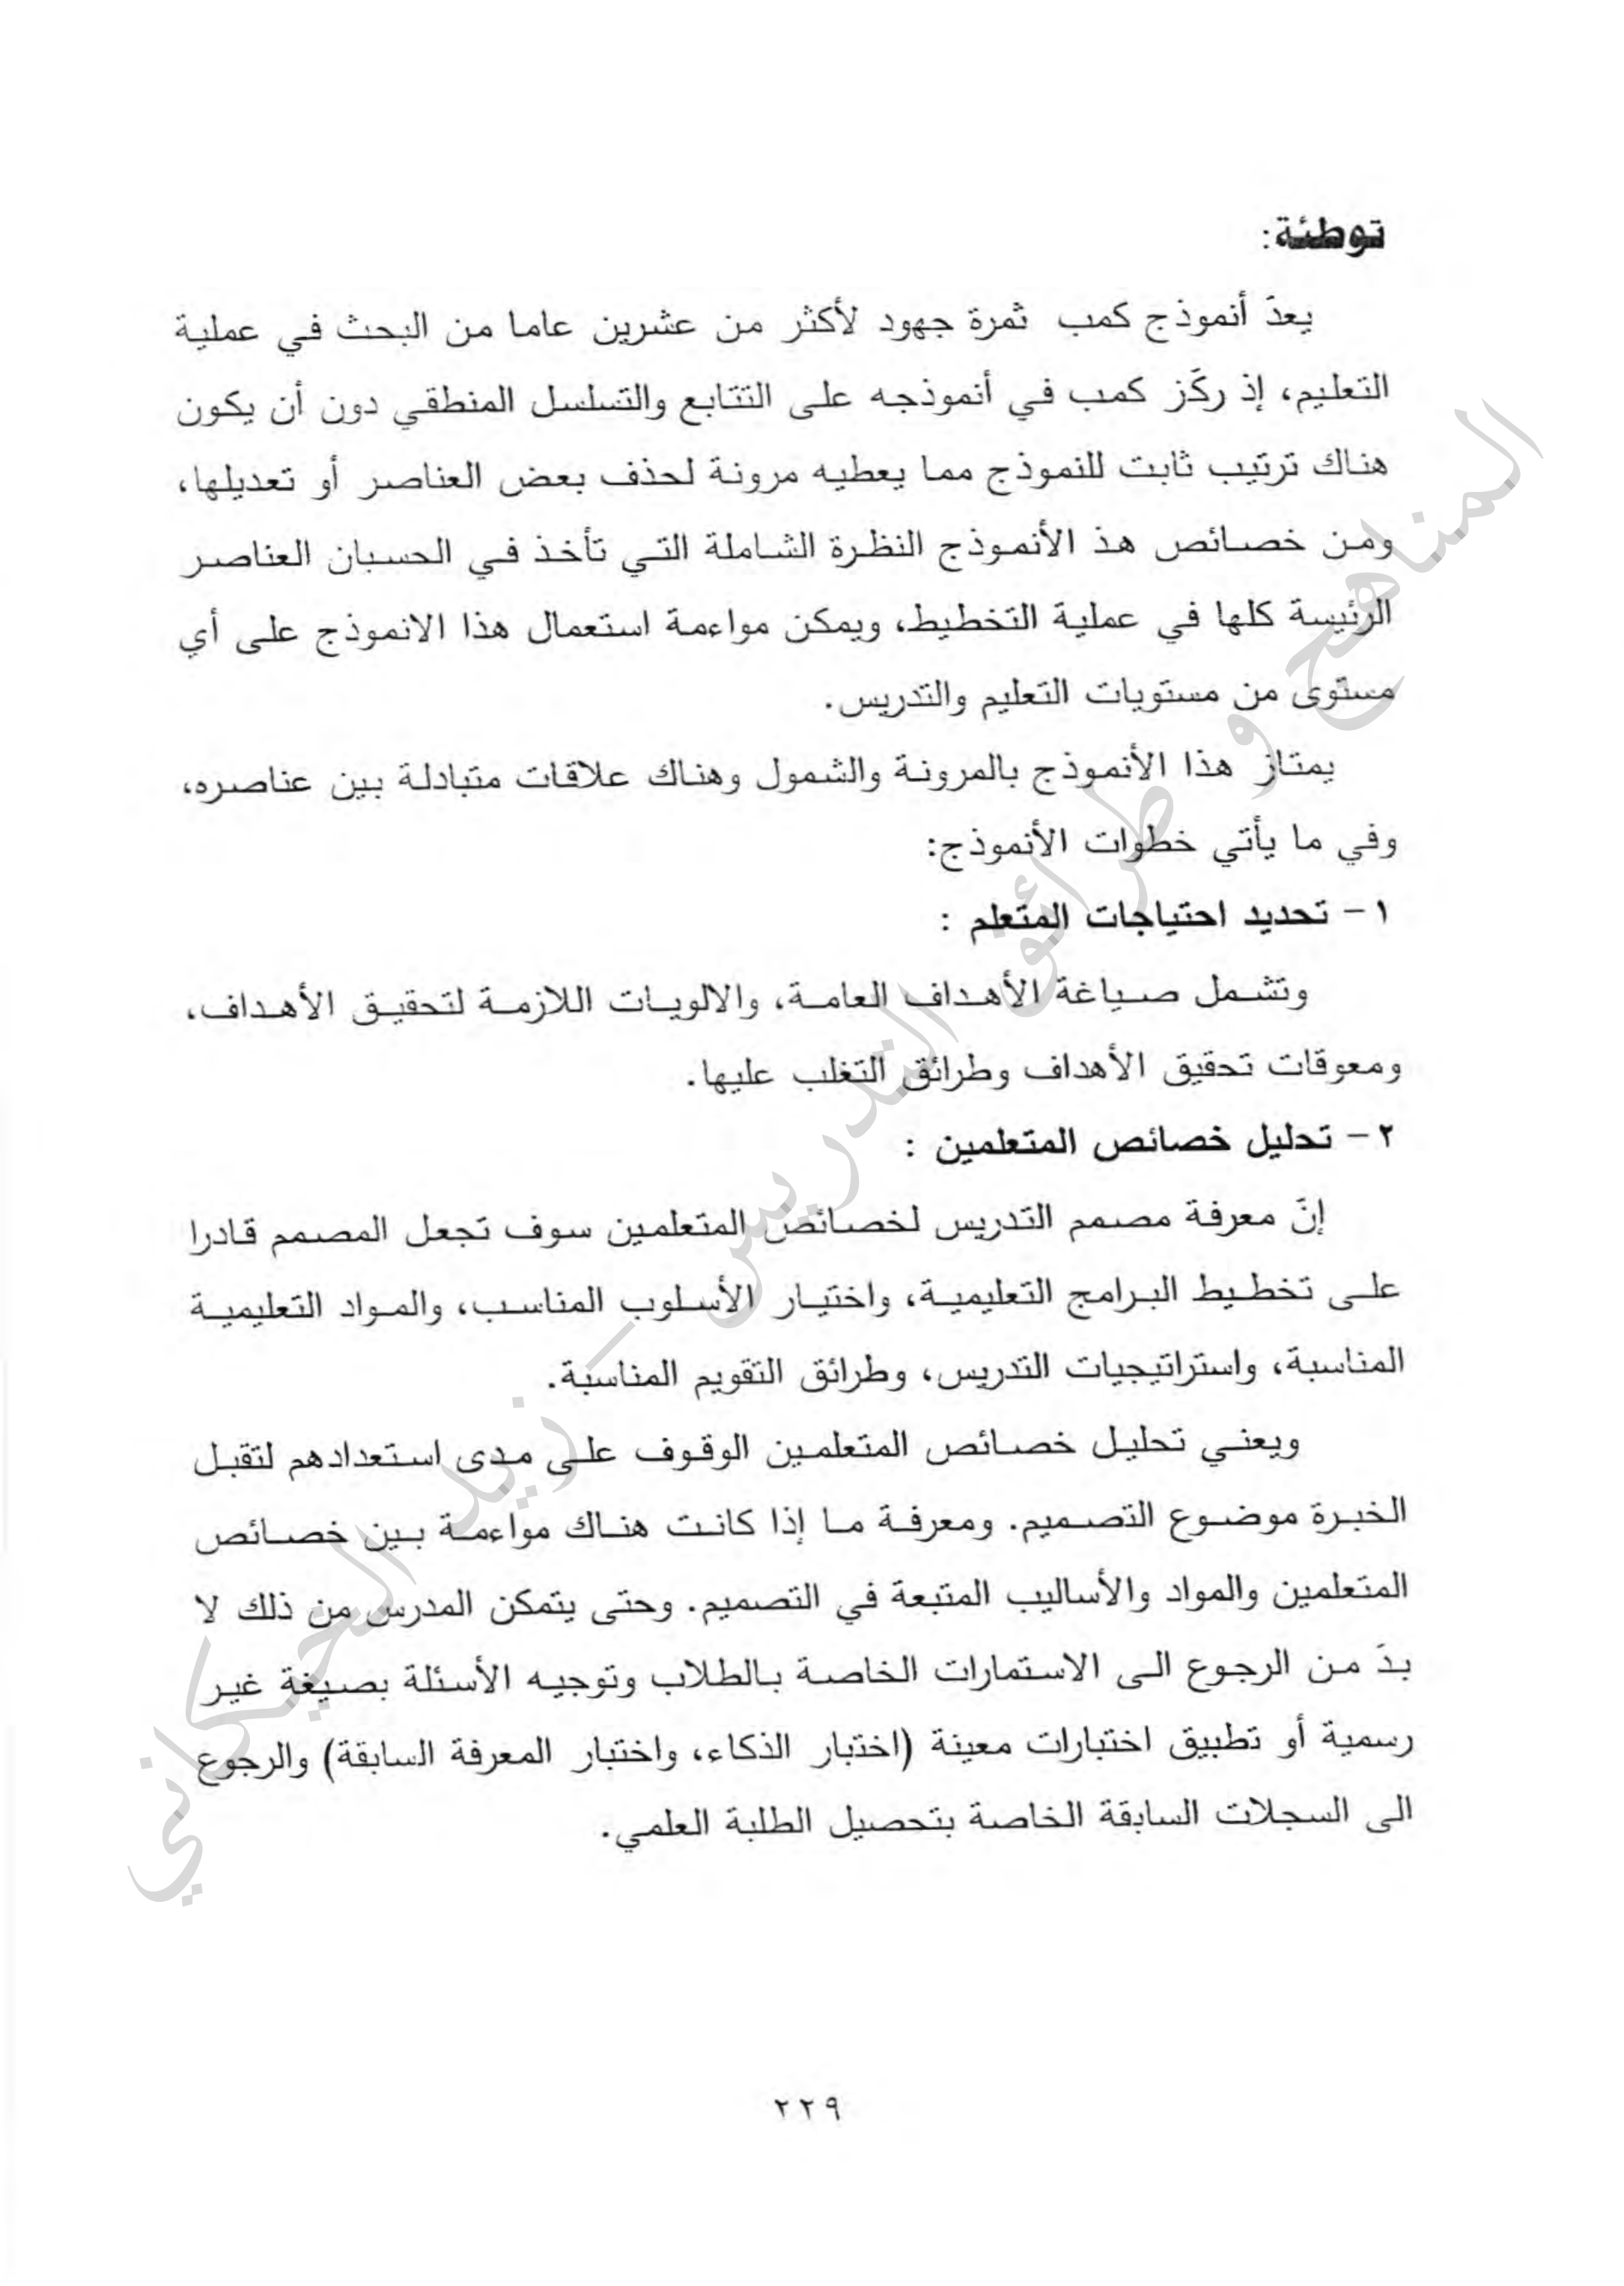 توطئة:
يعدّ أنموذج كمب ثمرة جهود لأكثر من عشرين عاما من البحث في عملية
التعليم، إذ ركّز كمب في أنموذجه على التتابع والتسلسل المنطقي دون أن يكون
هناك ترتيب ثابت للنموذج مما يعطيه مرونة لحذف بعض العناصر أو تعديلها،
ومن خصائص هذ الأنموذج النظرة الشاملة التي تأخذ في الحسبان العناصر
الرئيسة كلها في عملية التخطيط، ويمكن مواءمة استعمال هذا الانموذج على أي
مستوى من مستويات التعليم والتدريس.
يمتاز هذا الأنموذج بالمرونة والشمول وهناك علاقات متبادلة بين عناصره،
وفي ما يأتي خطوات الأنموذج:
١- تحديد احتياجات المتعلم :
وتشمل صياغة الأهداف العامة، والالويات اللازمة لتحقيق الأهداف،
ومعوقات تحقيق الأهداف وطرائق التغلب عليها.
٢- تحليل خصائص المتعلمين :
إنّ معرفة مصمم التدريس لخصائص المتعلمين سوف تجعل المصمم قادرا
على تخطيط البرامج التعليمية، واختيار الأسلوب المناسب، والمواد التعليمية
المناسبة، واستراتيجيات التدريس، وطرائق التقويم المناسبة.
ويعني تحليل خصائص المتعلمين الوقوف على مدى استعدادهم لتقبل
الخبرة موضوع التصميم. ومعرفة ما إذا كانت هناك مواءمة بين خصائص
المتعلمين والمواد والأساليب المتبعة في التصميم. وحتى يتمكن المدرس من ذلك لا
بدّ من الرجوع الى الاستمارات الخاصة بالطلاب وتوجيه الأسئلة بصيغة غير
رسمية أو تطبيق اختبارات معينة (اختبار الذكاء، واختبار المعرفة السابقة) والرجوع
الى السجلات السابقة الخاصة بتحصيل الطلبة العلمي.
المناهج و طرائق التدريس – زيد الحچكاني
٢٢٩